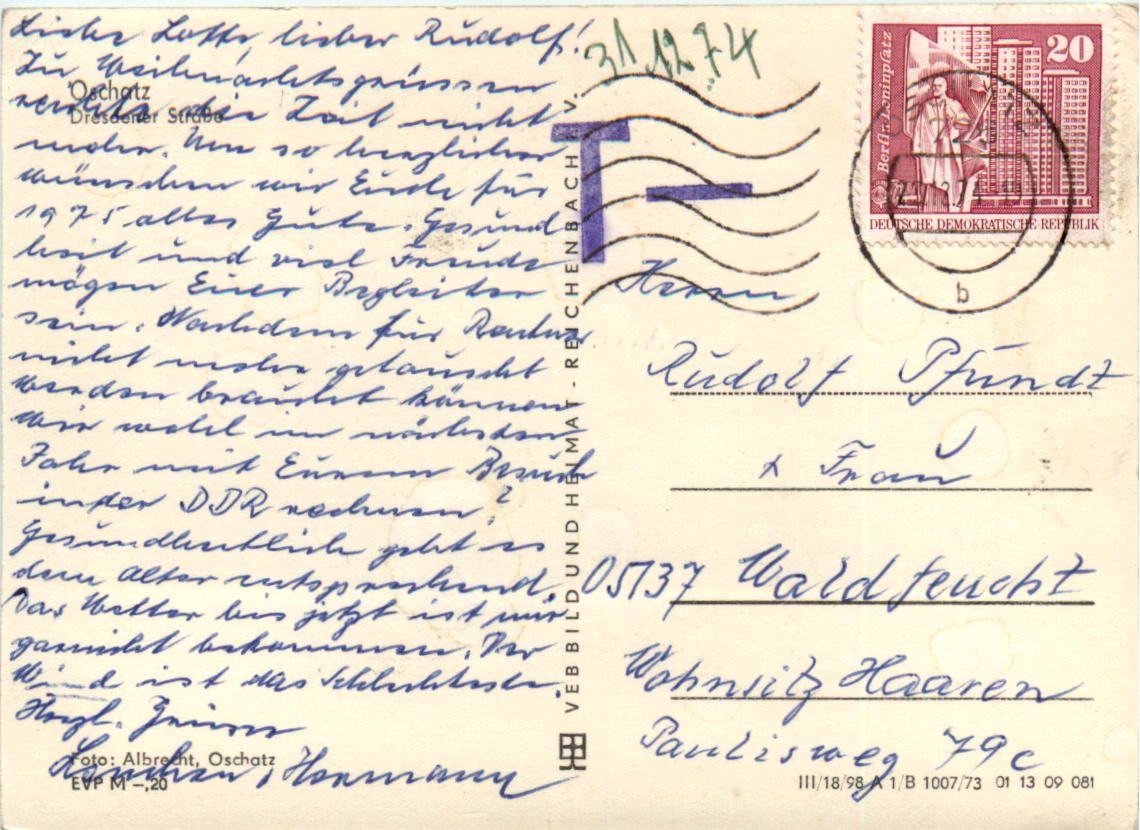 Liebe Lotte, lieber Rudolf!
Zu Weihnachtsgrüssen
reichte die Zeit nicht
mehr. Um so herzlicher
wünschen wir Euch für
1975 alles Gute. Gesund
heit und viel Freude
mögen Euer Begleiter
sein. Nachdem für Rentner
nicht mehr getauscht
werden braucht können
wir wohl im nächsten
Jahr mit Eurem Besuch
in der DDR rechnen?
Gesundheitlich geht es
dem Alter entsprechend.
Das Wetter bis jetzt ist mir
garnicht bekommen. Der
Wind ist das Schlechteste.
Herzl. Grüsse
Hermann
Oschatz
Dresdener Straße
Foto: Albrecht, Oschatz
EVP M –,20
VEB BILD UND HEIMAT - REICHENBACH I. V.
31.12.74
T
Berlin Leninplatz
20
DEUTSCHE DEMOKRATISCHE REPUBLIK
b
Herrn
Rudolf Pfundt
+ Frau
05137 Waldfeucht
Wohnsitz Haaren
Paulisweg 79c
III/18/98 A 1/B 1007/73 01 13 09 081